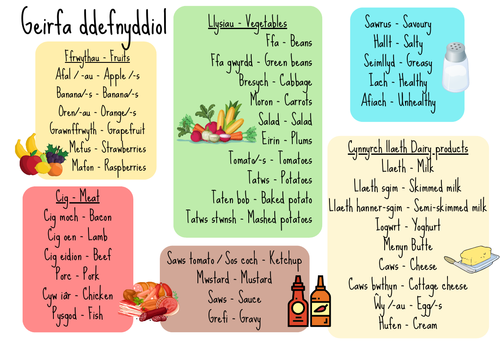 Geirfa ddefnyddiol
Ffrwythau - Fruits
Afal / -au - Apple /-s
Banana/-s - Banana/-s
Oren/-au - Orange/-s
Grawnffrwyth - Grapefruit
Mefus - Strawberries
Mafon - Raspberries
Llysiau - Vegetables
Ffa - Beans
Ffa gwyrdd - Green beans
Bresych - Cabbage
Moron - Carrots
Salad - Salad
Eirin - Plums
Tomato/-s - Tomatoes
Tatws - Potatoes
Taten bob - Baked potato
Tatws stwnsh - Mashed potatoes
Sawrus - Savoury
Hallt - Salty
Seimllyd - Greasy
Iach - Healthy
Afiach - Unhealthy
Cig - Meat
Cig moch - Bacon
Cig oen - Lamb
Cig eidion - Beef
Porc - Pork
Cyw iâr - Chicken
Pysgod - Fish
Saws tomato / Sos coch - Ketchup
Mwstard - Mustard
Saws - Sauce
Grefi - Gravy
Cynnyrch llaeth Dairy products
Llaeth - Milk
Llaeth sgim - Skimmed milk
Llaeth hanner-sgim - Semi-skimmed milk
Iogwrt - Yoghurt
Menyn Butte
Caws - Cheese
Caws bwthyn - Cottage cheese
Wy /-au - Egg/-s
Hufen - Cream